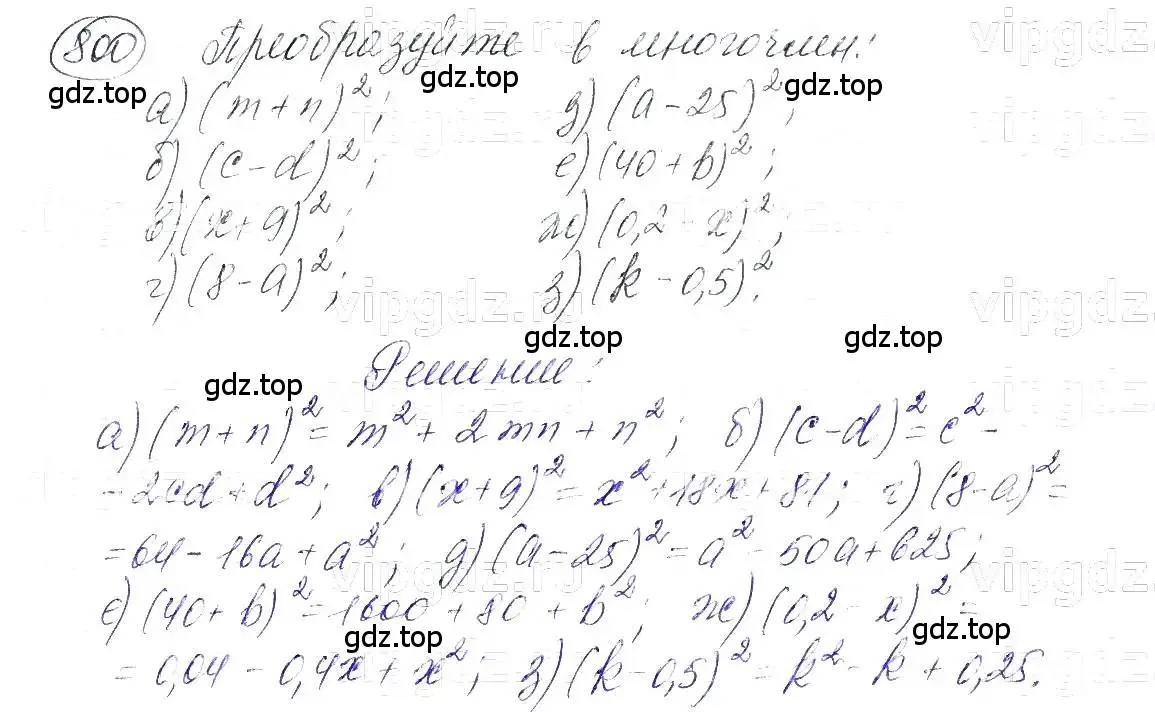 800 Преобразуйте в многочлен:
а) (m + n)²; д) (a - 25)²;
б) (c - d)²; е) (40 + b)²;
в) (x + 9)²; ж) (0,2 - x)²;
г) (8 - a)²; з) (k - 0,5)².
Решение:
а) (m + n)² = m² + 2mn + n²; б) (c - d)² = c² -
- 2cd + d²; в) (x + 9)² = x² + 18x + 81; г) (8 - a)² =
= 64 - 16a + a²; д) (a - 25)² = a² - 50a + 625;
е) (40 + b)² = 1600 + 80 + b²; ж) (0,2 - x)² =
= 0,04 - 0,4x + x²; з) (k - 0,5)² = k² - k + 0,25.
gdz.top
gdz.top
gdz.top
gdz.top
gdz.top
gdz.top
gdz.top
gdz.top
vipgdz.ru
vipgdz.ru